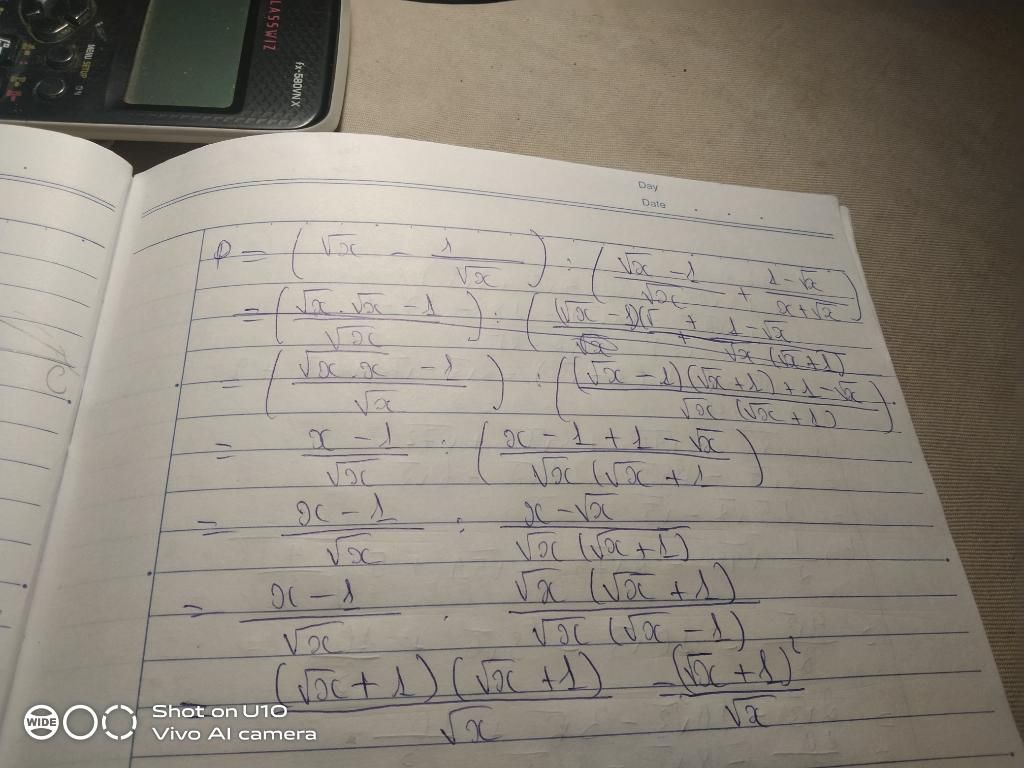 CLASSWIZ
fx-580VN X
MENU SETUP
ON
Day
Date
P = ( √x - 1/√x ) : ( (√x - 1)/√x + (1 - √x)/(x + √x) )
= ( (√x . √x - 1)/√x ) : (
= ( (√x . x - 1)/√x ) : ( ((√x - 1)(√x + 1) + 1 - √x)/(√x (√x + 1)) )
= (x - 1)/√x : ( (x - 1 + 1 - √x)/(√x (√x + 1 )
= (x - 1)/√x : (x - √x)/(√x (√x + 1))
= (x - 1)/√x . (√x (√x + 1))/(√x (√x - 1))
= ((√x + 1)(√x + 1))/√x = (√x + 1)²/√x
WIDE
Shot on U10
Vivo AI camera